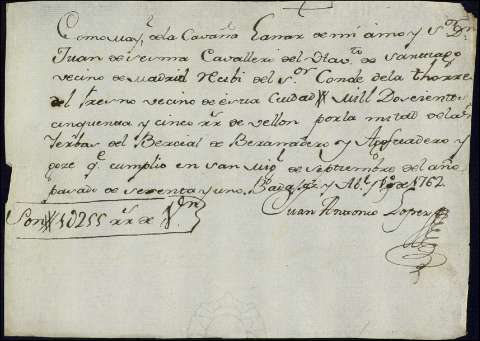 Como May.l de la Cavaña Lanar de mi amo y S.or D.n
Juan de Cavallero del Avito de Santiago
vecino de Madrid Recibi del S.or Conde de la thorre
del fresno vecino de esta Ciudad Mill Doscientos
cinquenta y cinco rr.s de vellon por la mitad de las
Yerbas del Bercial de Beramadero y Apostadero y
goze q.e cumplio en San Mig.l de Septiembre del año
pasado de sesenta y uno, Badajoz y Ab.l de 1762
Juan Antonio Lopez
Son 1U255 rr.s de V.on